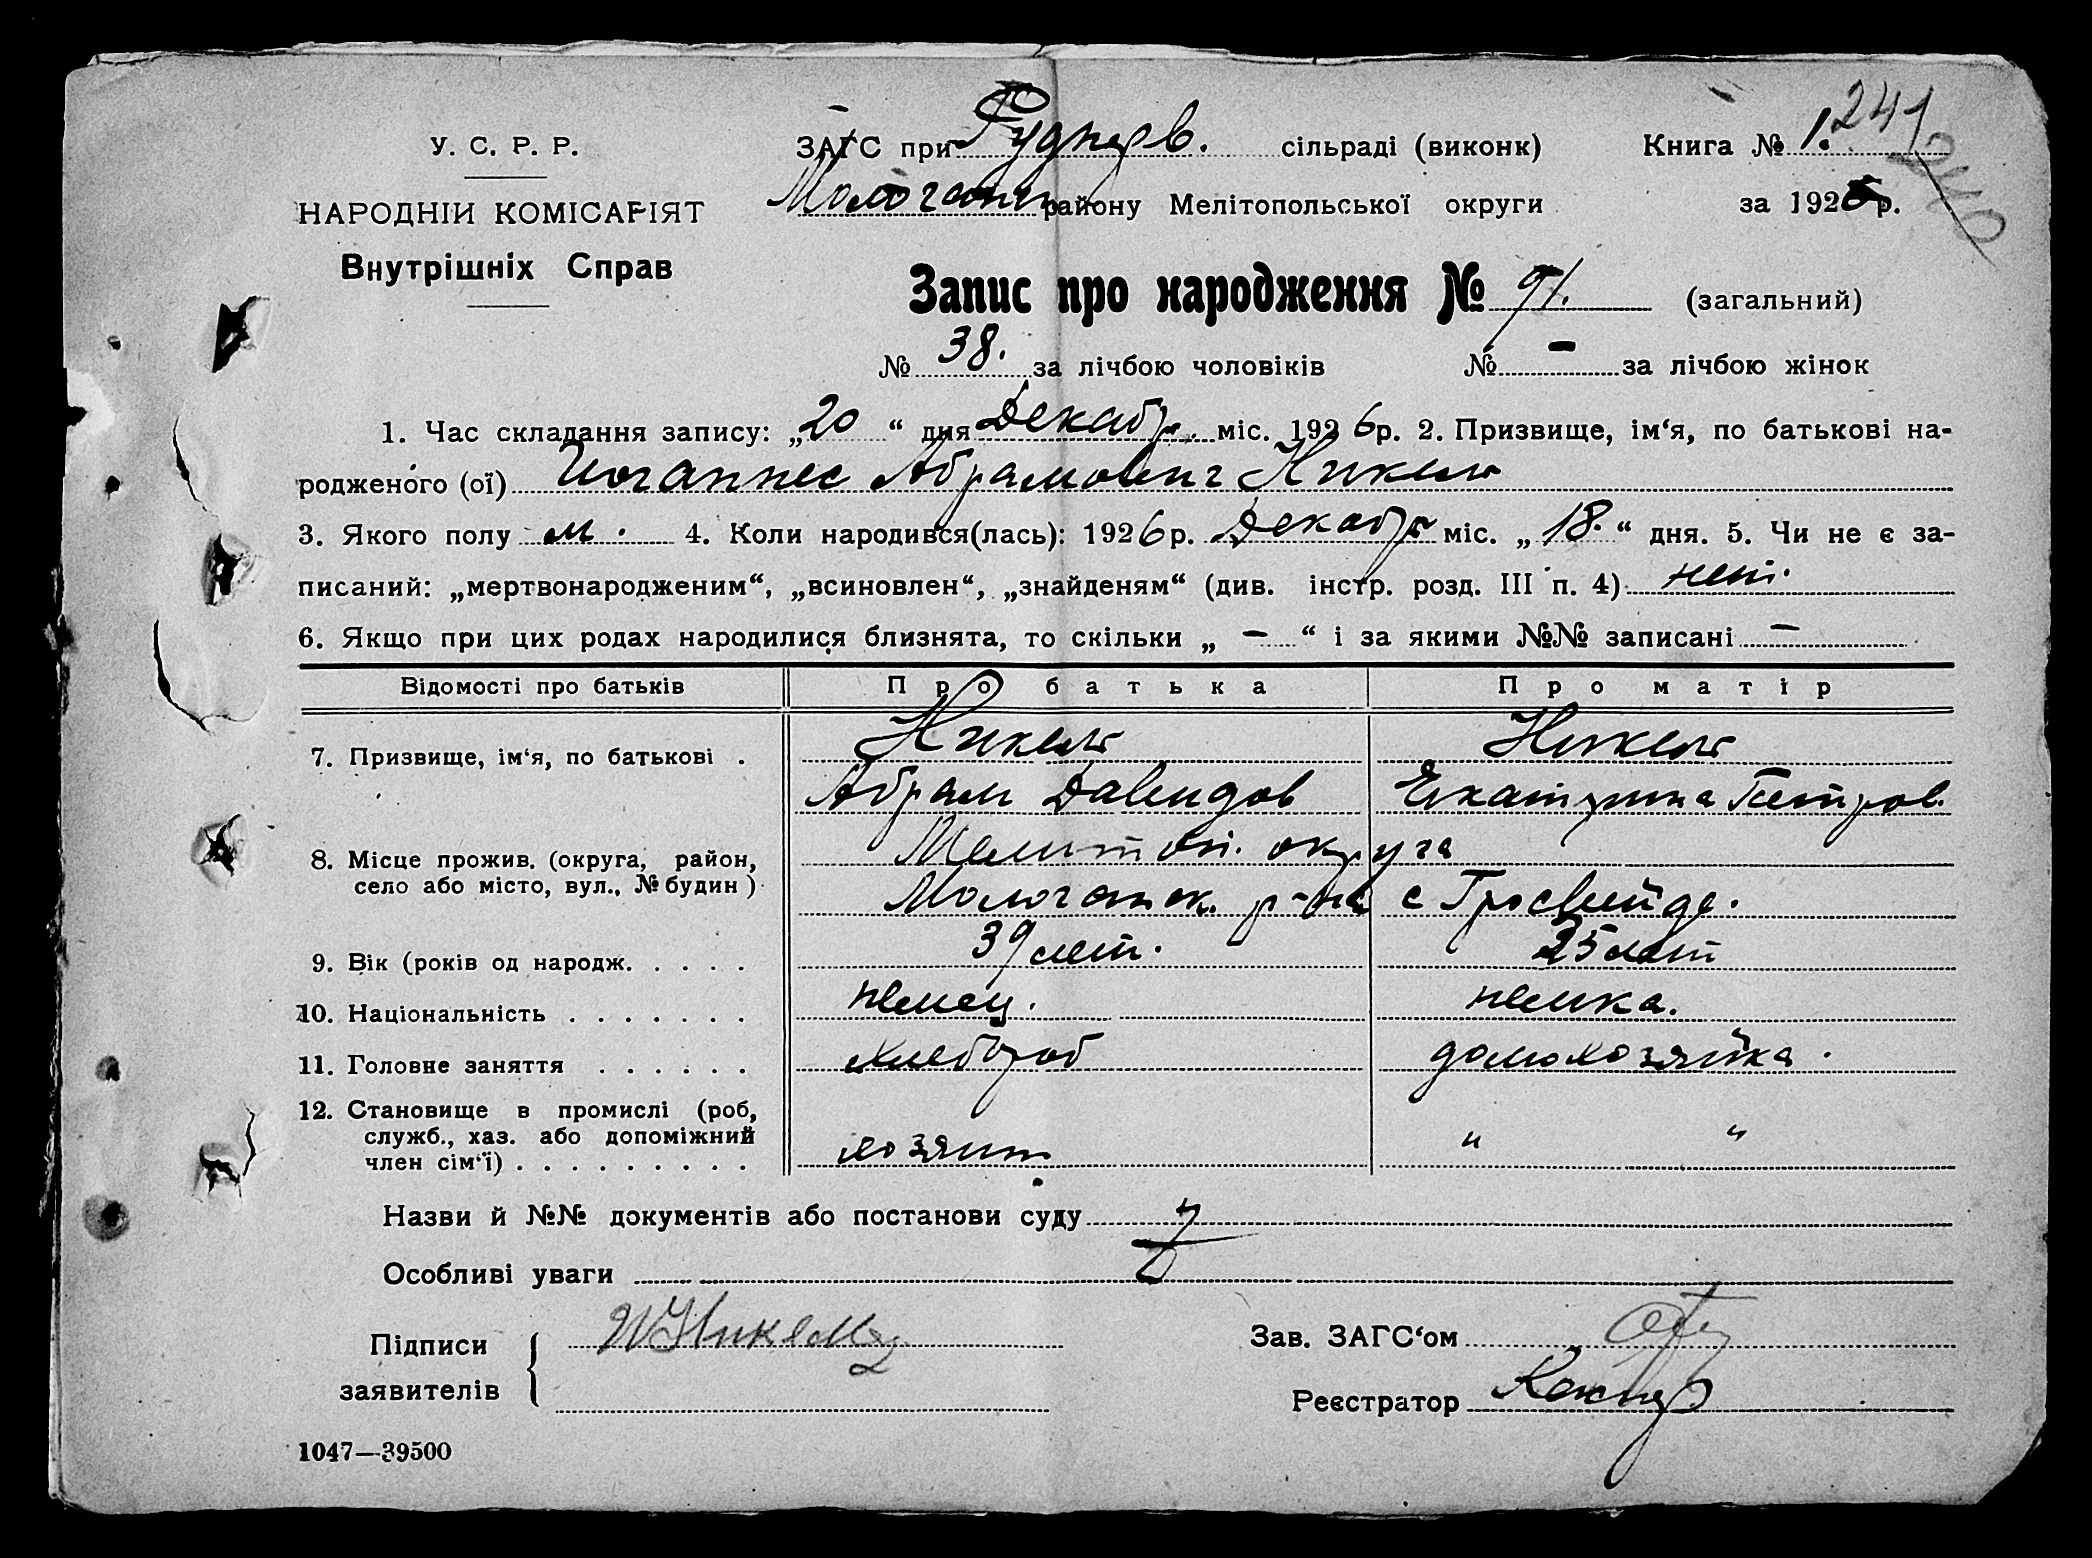 У. С. Р. Р.
НАРОДНІЙ КОМІСАРІЯТ
Внутрішніх Справ
ЗАГС при Руднерв. сільраді (виконк) Книга № 1. 241
240
Молочанск району Мелітопольської округи за 1926 р.
Запис про народження № 91. (загальний)
№ 38. за лічбою чоловіків № – за лічбою жінок
1. Час складання запису: „20“ дня Декабр. міс. 1926 р. 2. Призвище, ім‘я, по батькові на-
родженого (ої) Иоганнес Абрамович Никель
3. Якого полу м. 4. Коли народився(лась): 1926 р. Декабр міс. „18.“ дня. 5. Чи не є за-
писаний: „мертвонародженим“, „всиновлен“, „знайденям“ (див. інстр. розд. III п. 4) нет.
6. Якщо при цих родах народилися близнята, то скільки „ – “ і за якими №№ записані –
Відомості про батьків Про батька Про матір
7. Призвище, ім‘я, по батькові . Никель Никель
Абрам Давидов Екатерина Петров.
8. Місце прожив. (округа, район, Мелитоп. округа
село або місто, вул., № будин) Молочанск. р-на с Гросвейде.
9. Вік (років од народж. . . . . 39 лет. 25 лет
10. Національність . . . . . . . немец. немка.
11. Головне заняття . . . . . . хлебороб домохозяйка.
12. Становище в промислі (роб,
служб., хаз. або допоміжний
член сім‘ї) . . . . . . . . . хозяин. " "
Назви й №№ документів або постанови суду
Особливі уваги
Підписи
заявителів
Зав. ЗАГС‘ом
Реєстратор
1047—39500